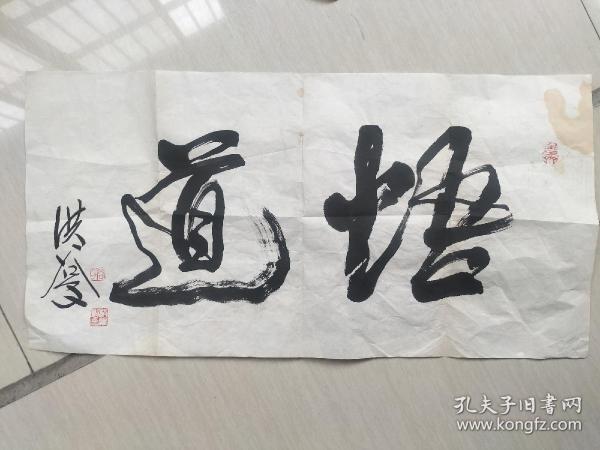 悟道
洪曼
孔夫子旧书网
www.kongfz.com